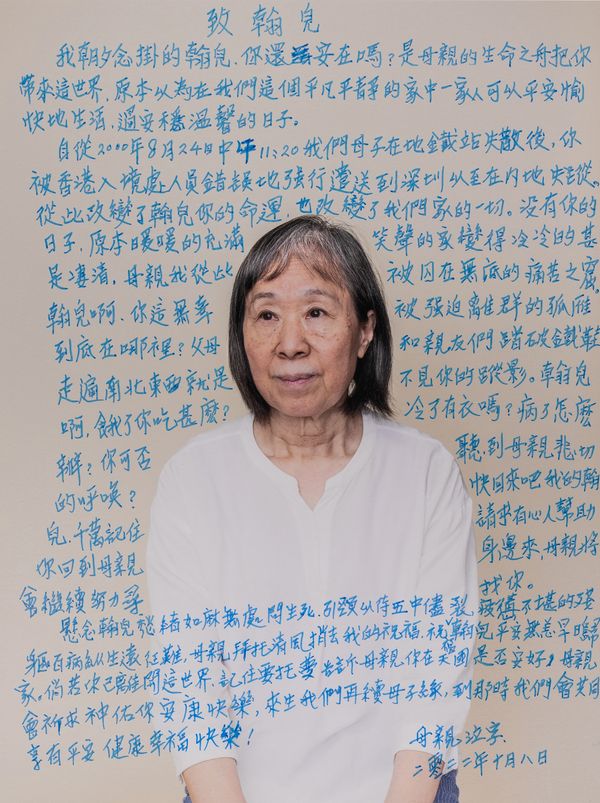 致翰兒
我朝夕念掛的翰兒,你還安在嗎?是母親的生命之舟把你
帶來這世界,原本以為在我們這個平凡平靜的家中一家人可以平安愉
快地生活,過安穩溫馨的日子。
自從2000年8月24日中午11:20我們母子在地鐵站失散後,你
被香港入境處人員錯誤地強行遣送到深圳以至在內地失蹤。
從此改變了翰兒你的命運,也改變了我們家的一切。沒有你的
日子,原本暖暖的充滿笑聲的家變得冷冷的甚
是淒清,母親我從此被囚在無底的痛苦之窟,
翰兒啊,你這無辜被強迫離群的孤雁
到底在哪裡?父母和親友們踏破鐵鞋
走遍南北東西就是不見你的蹤影。翰兒
啊,餓了你吃甚麼?冷了有衣嗎?病了怎麼
辦?你可否聽到母親悲切
的呼喚?快回來吧我的翰
兒,千萬記住請求有心人幫助
你回到母親身邊來,母親將
會繼續努力尋找你。
懸念翰兒愁緒如麻無處問生死,引頸以待五中儘裂,疲憊不堪的殘
軀百病叢生遠征難,母親拜托清風捎去我的祝福,祝翰兒平安無恙早日歸
家。倘若你已離開這世界,記住要托夢告訴母親你在天國是否安好,母親
會祈求神佑你安康快樂,來生我們再續母子緣,到那時我們會共同
享有平安健康幸福快樂!
母親泣字
二零二二年十月八日